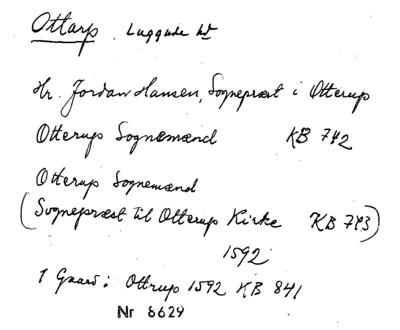 Ottarp Luggude hd
Hr. Jordan Hansen, Sognepræst i Otterup
Otterup Sognemænd KB 742
Otterup Sognemænd
(Sognepræst til Otterup Kirke KB 743)
1592
1 Gaard i Ottrup 1592 KB 841
Nr 6629